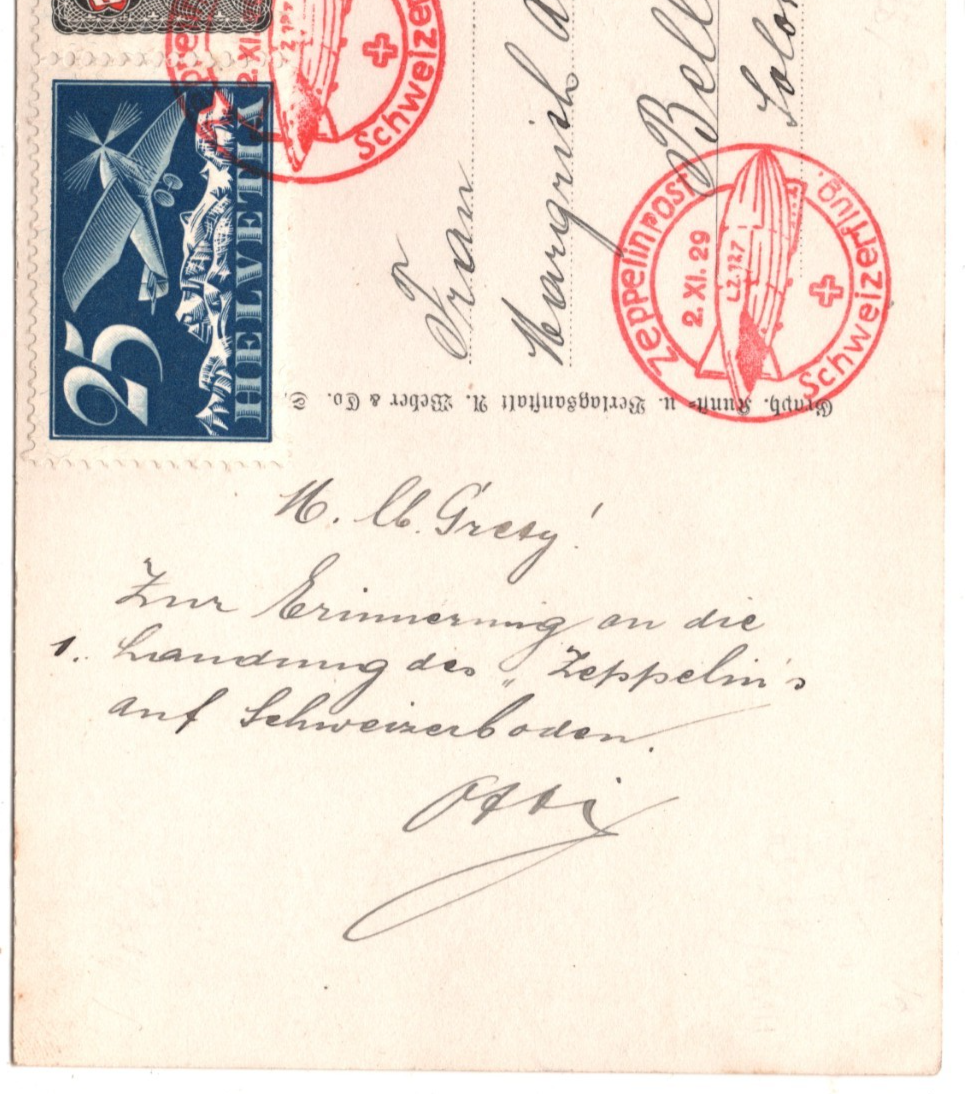 2. XI.
Schweizer
HELVETIA
25
Frau
Margrith
Bell
Solo
Zeppelinpost
2. XI. 29
L.Z.127
Schweizerflug.
Graph. Kunst- u. Verlagsanstalt A. Weber & Co.
M. lb. Gretÿ!
Zur Erinnerung an die
1. Landung des „Zeppelin's
auf Schweizerboden.